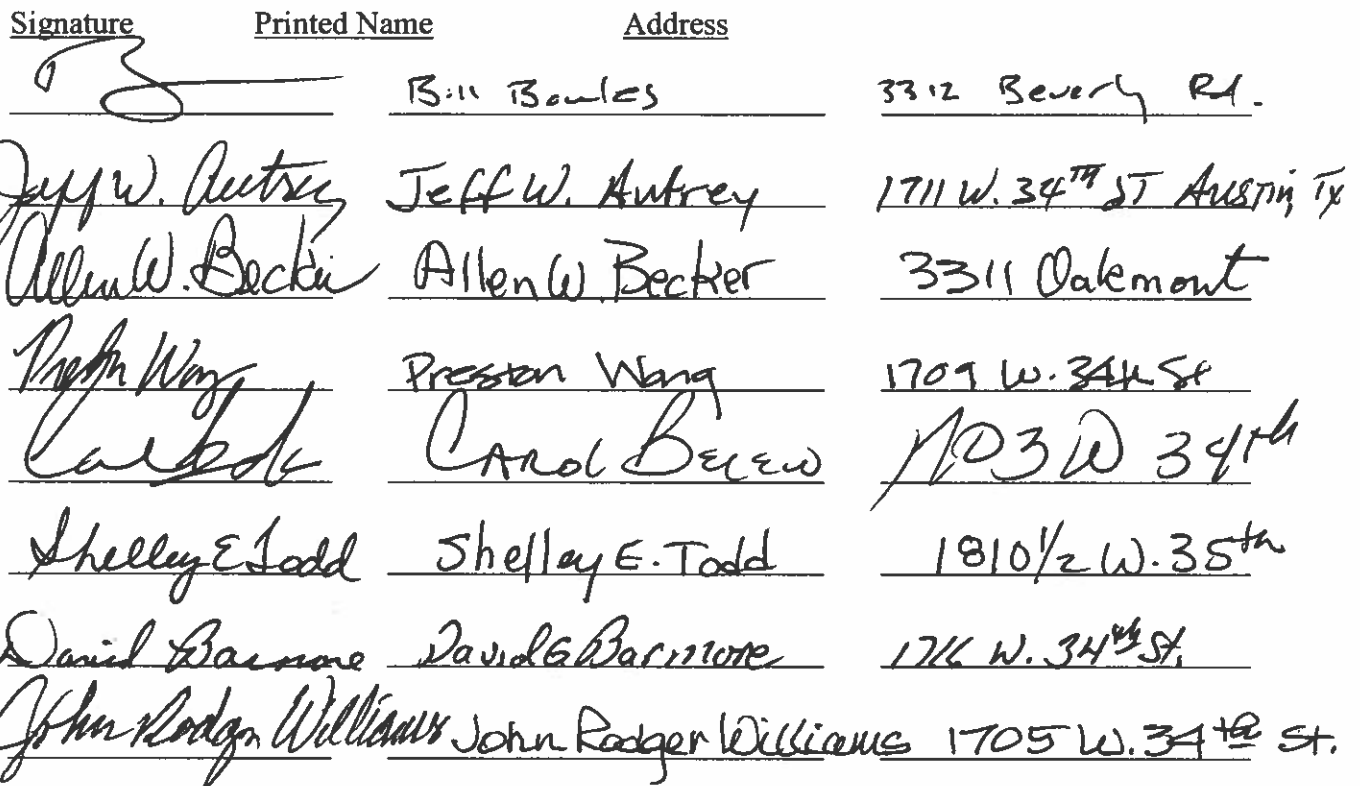 Signature Printed Name Address
Bill Bowles 3312 Beverly Rd.
Jeff W. Autrey Jeff W. Autrey 1711 W. 34TH ST Austin, Tx
Allen W. Becker Allen W. Becker 3311 Oakmont
Preston Wang Preston Wang 1709 W. 34th St
Carol Belew W 34th
Shelley E Todd Shelley E. Todd 1810 1/2 W. 35th
David Barmore David G Barmore 1716 W. 34th St.
John Rodger Williams John Rodger Williams 1705 W. 34th St.